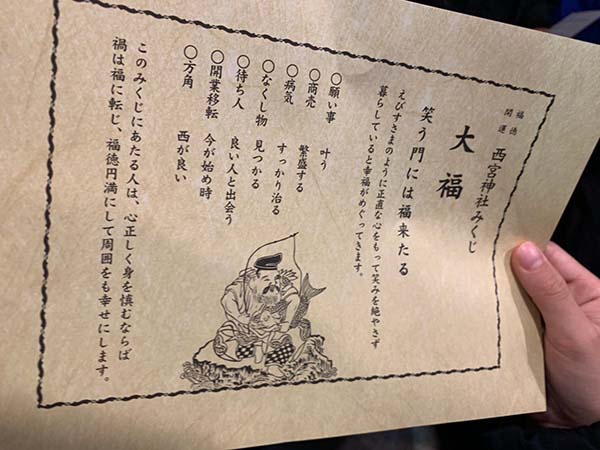 福徳
開運
西宮神社みくじ
大福
笑う門には福来たる
えびすさまのように正直な心をもって笑みを絶やさず
暮らしていると幸福がめぐってきます。
○願い事　叶う
○商売　繁盛する
○病気　すっかり治る
○なくし物　見つかる
○待ち人　良い人と出会う
○開業移転　今が始め時
○方角　西が良い
このみくじにあたる人は、心正しく身を慎むならば
禍は福に転じ、福徳円満にして周囲をも幸せにします。